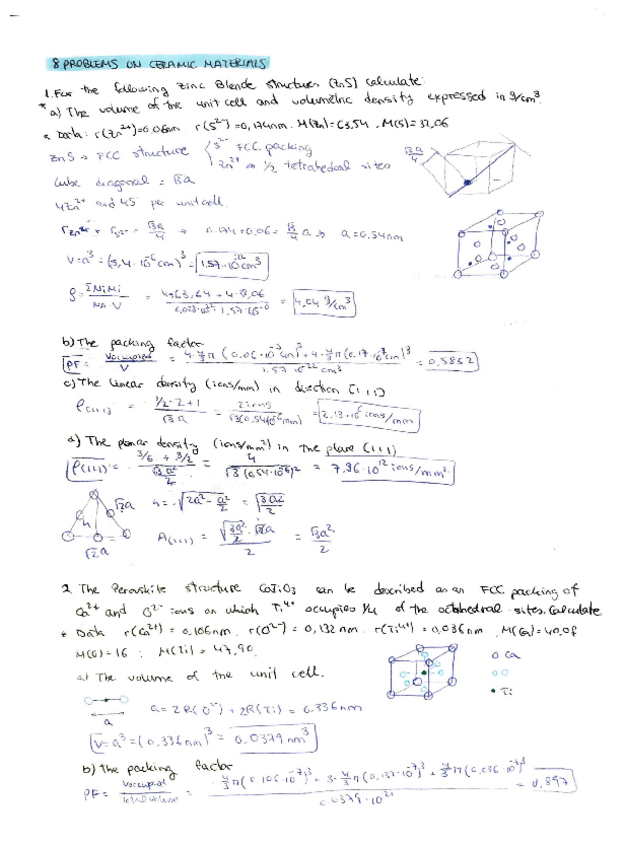 8 PROBLEMS ON CERAMIC MATERIALS
1. For the following Zinc Blende structures (ZnS) calculate:
* a) The volume of the unit cell and volumetric density expressed in g/cm³.
* Data: r(Zn²⁺)=0.06nm r(S²⁻)=0,174nm. M(Zn)=63,54. M(S)=32,06
ZnS → FCC structure { S²⁻ FCC packing
Zn²⁺ → 1/2 tetrahedral sites
√3a/4
Cube diagonal = √3a
4Zn²⁺ and 4S per unit cell.
r Zn²⁺ + r S²⁻ = √3a/4 → 0.174+0,06 = √3/4 a → a=0,54nm
V=a³ = (5,4·10⁻⁸cm)³ = 1,57·10⁻²²cm³
ρ = ΣNiMi / NA·V = = 4,04 g/cm³
b) The packing factor
PF = Voccupied / V = = 0,5862
c) The linear density (ions/mm) in direction [111]
ρ[111] = 1/2·2+1 / √3a = 2 ions / √3(0.54·10⁻⁶mm) = 2.13·10⁶ ions/mm
d) The planar density (ions/mm²) in the plane (111)
ρ(111) = 3/6 + 3/2 / √3a²/4 = 4 / √3(0.54·10⁻⁶)² = 7,96·10¹² ions/mm²
h √2a h = √2a² - a²/2 =
√2a A(111) = = √3a²/2
2. The Perovskite structure CaTiO₃ can be described as an FCC packing of
Ca²⁺ and O²⁻ ions on which Ti⁴⁺ occupies 1/4 of the octahedral sites. Calculate
* Data r(Ca²⁺) = 0,106nm. r(O²⁻) = 0,132nm. r(Ti⁴⁺) = 0,036nm. M(Ca)=40,08
M(O)=16 ; M(Ti) = 47,90.
o Ca
o O
• Ti
a) The volume of the unit cell.
a a=2R(O²⁻)+2R(Ti) = 0.336nm
V=a³=(0,336nm)³ = 0,0379nm³
b) the packing factor
PF = Voccupied / Total volume = = 0,897